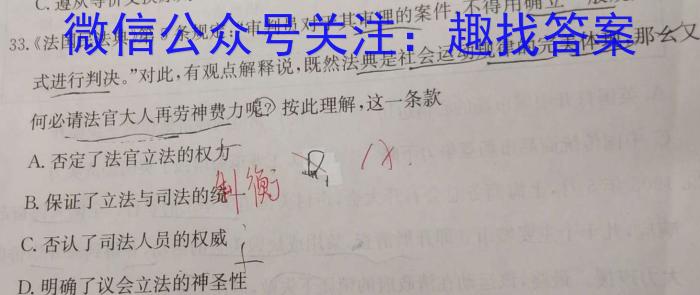 C. 遵从等价交换原
微信公众号关注：趣找答案
33.《法国民法典》第5条规定:“审判员对于其审理的案件,不得用确立一般规
式进行判决。”对此,有观点解释说,既然法典是社会运动规律的完美体现,那么又
何必请法官大人再劳神费力呢?按此理解,这一条款
A. 否定了法官立法的权力
B. 保证了立法与司法的统
制衡
C. 否认了司法人员的权威
D. 明确了议会立法的神圣性